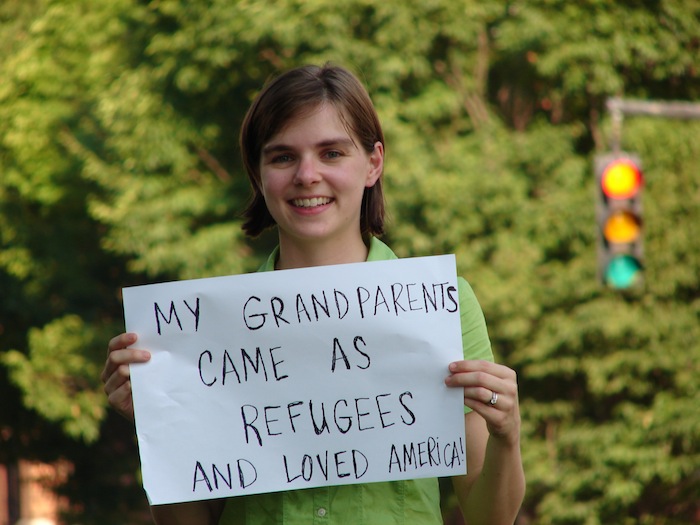 MY GRANDPARENTS
CAME AS
REFUGEES
AND LOVED AMERiCA!